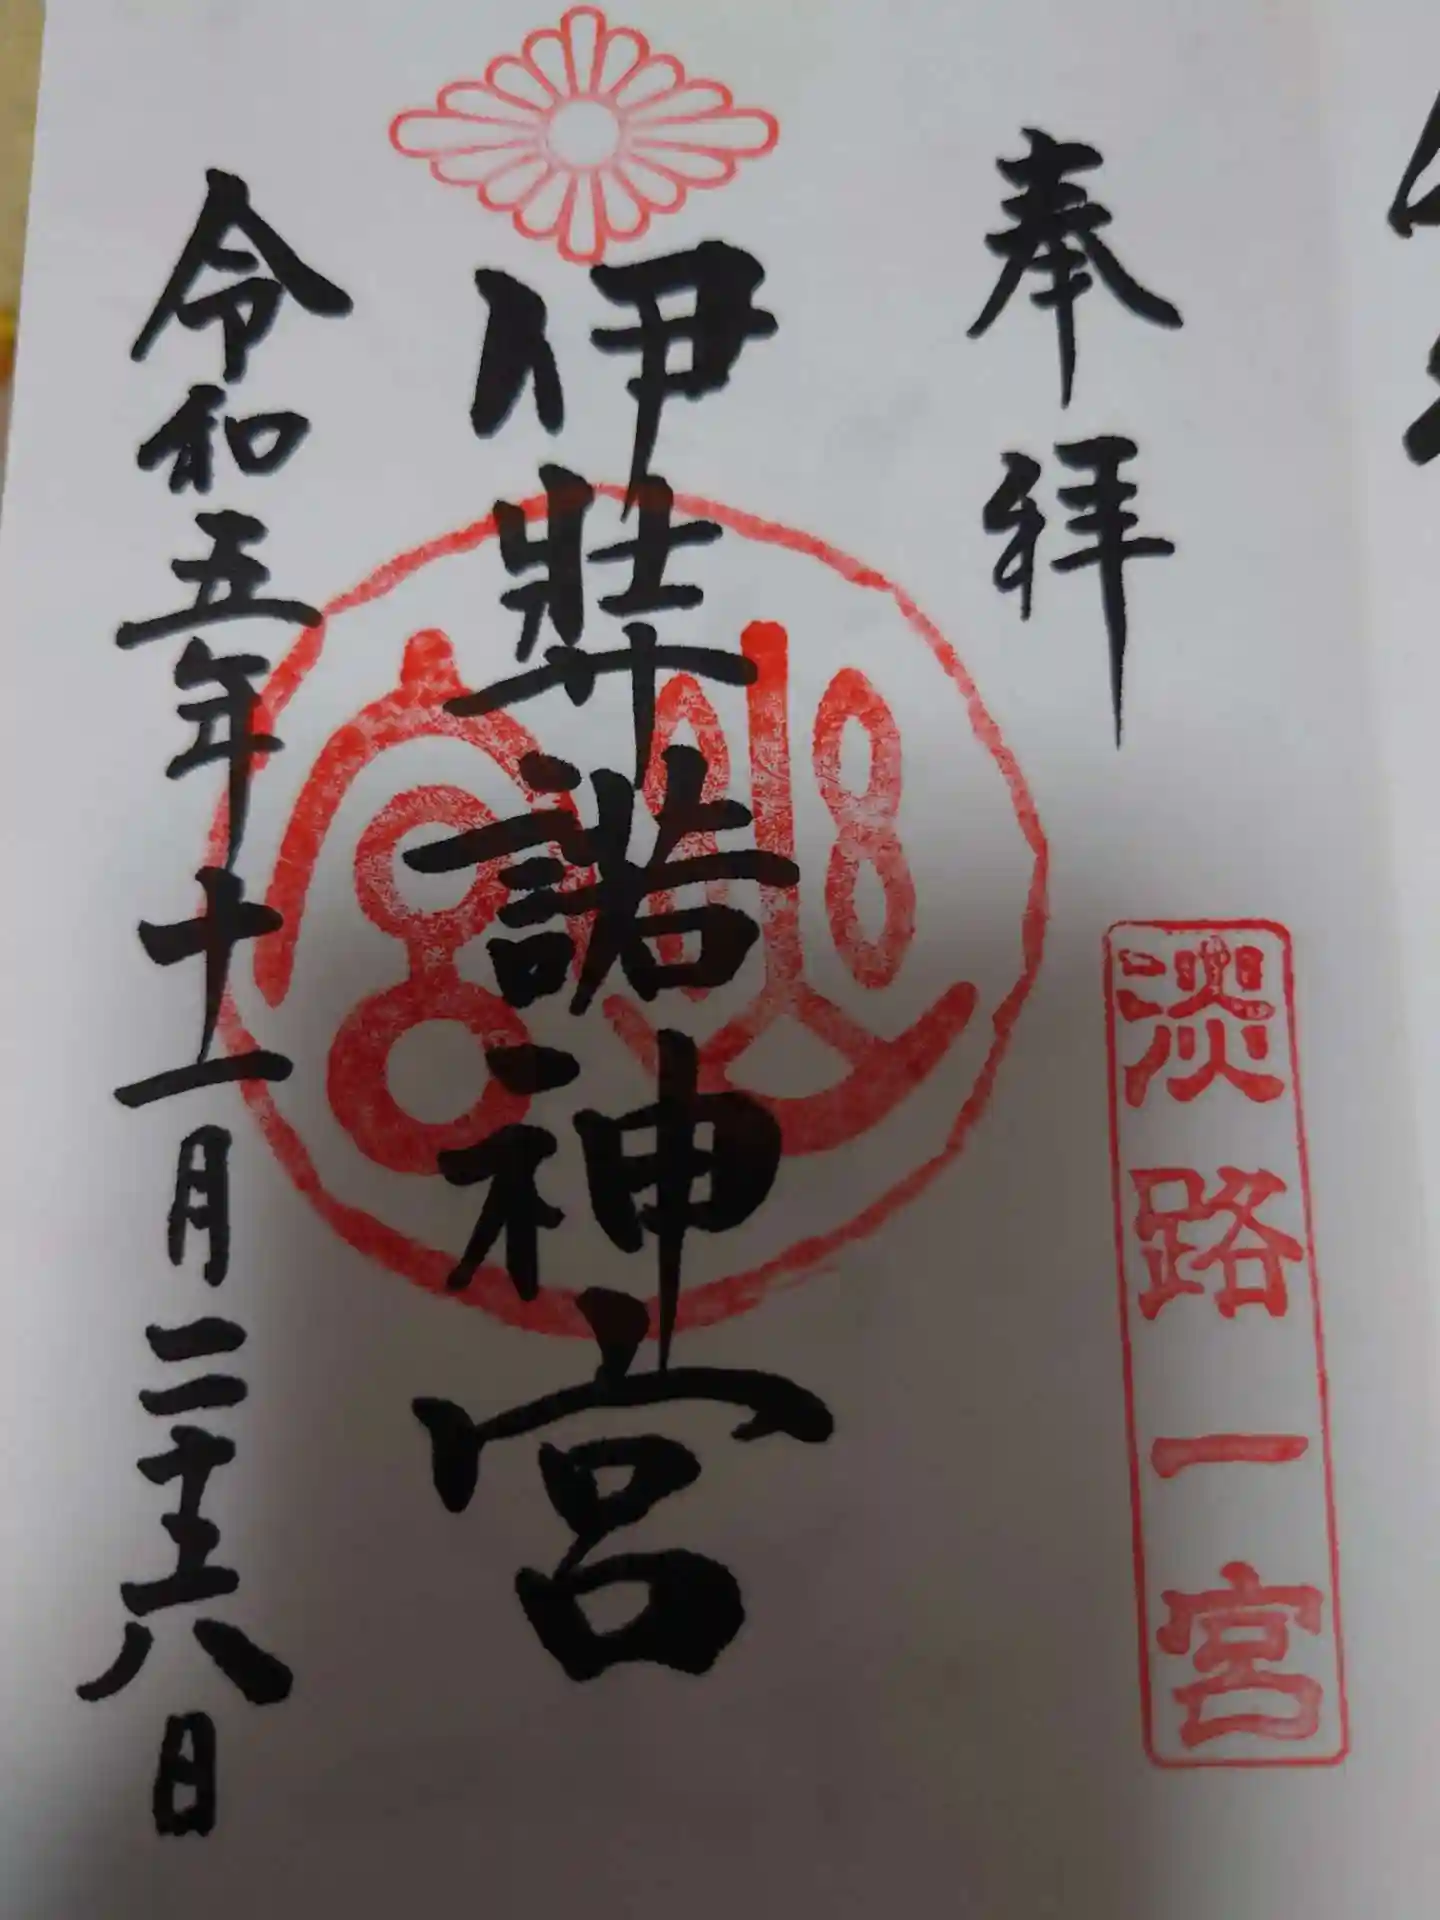 奉拝
淡路一宮
伊弉諾神宮
幽宮
令和五年十一月二十六日